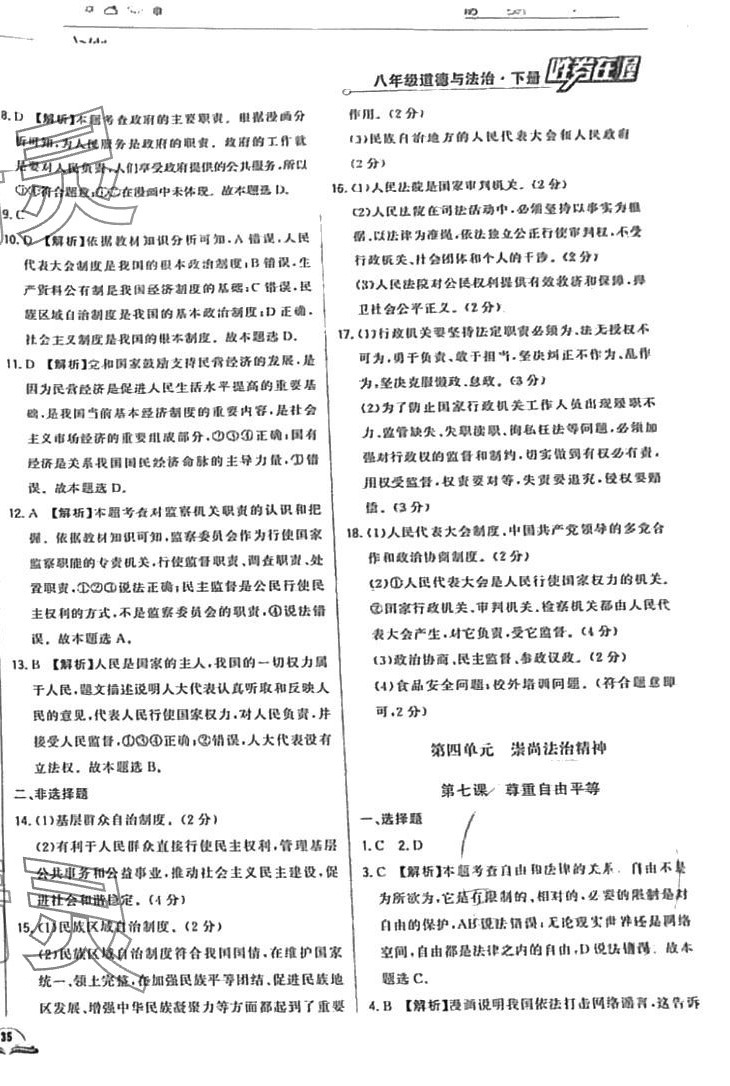 八年级道德与法治·下册 胜券在握
8. D 【解析】本题考查政府的主要职责。根据漫画分
析可知,为人民服务是政府的职责。政府的工作就
是要对人民负责,人们享受政府提供的公共服务,所以
符合题意,在漫画中未体现。故本题选D。
9. C
10. D 【解析】依据教材知识分析可知,A错误,人民
代表大会制度是我国的根本政治制度;B错误,生
产资料公有制是我国经济制度的基础;C错误,民
族区域自治制度是我国的基本政治制度;D正确,
社会主义制度是我国的根本制度。故本题选D。
11. D 【解析】党和国家鼓励支持民营经济的发展,是
因为民营经济是促进人民生活水平提高的重要基
础,是我国当前基本经济制度的重要内容,是社会
主义市场经济的重要组成部分,②③④正确;国有
经济是关系我国国民经济命脉的主导力量,①错
误。故本题选D。
12. A 【解析】本题考查对监察机关职责的认识和把
握。依据教材知识可知,监察委员会作为行使国家
监察职能的专责机关,行使监督职责、调查职责、处
置职责,①②③说法正确;民主监督是公民行使民
主权利的方式,不是监察委员会的职责,④说法错
误。故本题选A。
13. B 【解析】人民是国家的主人,我国的一切权力属
于人民,题文描述说明人大代表认真听取和反映人
民的意见,代表人民行使国家权力,对人民负责,并
接受人民监督,①③④正确;②错误,人大代表没有
立法权。故本题选B。
二、非选择题
14. (1)基层群众自治制度。(2分)
(2)有利于人民群众直接行使民主权利,管理基层
公共事务和公益事业,推动社会主义民主建设,促
进社会和谐稳定。(4分)
15. (1)民族区域自治制度。(2分)
(2)民族区域自治制度符合我国国情,在维护国家
统一、领土完整,在加强民族平等团结、促进民族地
区发展、增强中华民族凝聚力等方面都起到了重要
35
作用。(2分)
(3)民族自治地方的人民代表大会和人民政府
(2分)
16. (1)人民法院是国家审判机关。(2分)
(2)人民法院在司法活动中,必须坚持以事实为根
据,以法律为准绳,依法独立公正行使审判权,不受
行政机关、社会团体和个人的干涉。(2分)
(3)人民法院对公民权利提供有效救济和保障,捍
卫社会公平正义。(2分)
17. (1)行政机关要坚持法定职责必须为、法无授权不
可为,勇于负责、敢于担当,坚决纠正不作为、乱作
为,坚决克服懒政、怠政。(3分)
(2)为了防止国家行政机关工作人员出现履职不
力、监管缺失、失职渎职、徇私枉法等问题,必须加
强对行政权的监督和制约,切实做到有权必有责,
用权受监督,有责要担当,失责要追究,侵权要赔
偿。(3分)
18. (1)人民代表大会制度、中国共产党领导的多党合
作和政治协商制度。(2分)
(2)①人民代表大会是人民行使国家权力的机关。
②国家行政机关、审判机关、检察机关都由人民代
表大会产生,对它负责,受它监督。(4分)
(3)政治协商、民主监督、参政议政。(2分)
(4)食品安全问题;校外培训问题。(符合题意即
可,2分)
第四单元 崇尚法治精神
第七课 尊重自由平等
一、选择题
1. C 2. D
3. C 【解析】本题考查自由和法律的关系。自由不是
为所欲为,它是有限制的、相对的,必要的限制是对
自由的保护,AB说法错误;无论现实世界还是网络
空间,自由都是法律之内的自由,D说法错误。故本
题选C。
4. B 【解析】漫画说明我国依法打击网络谣言,这告诉